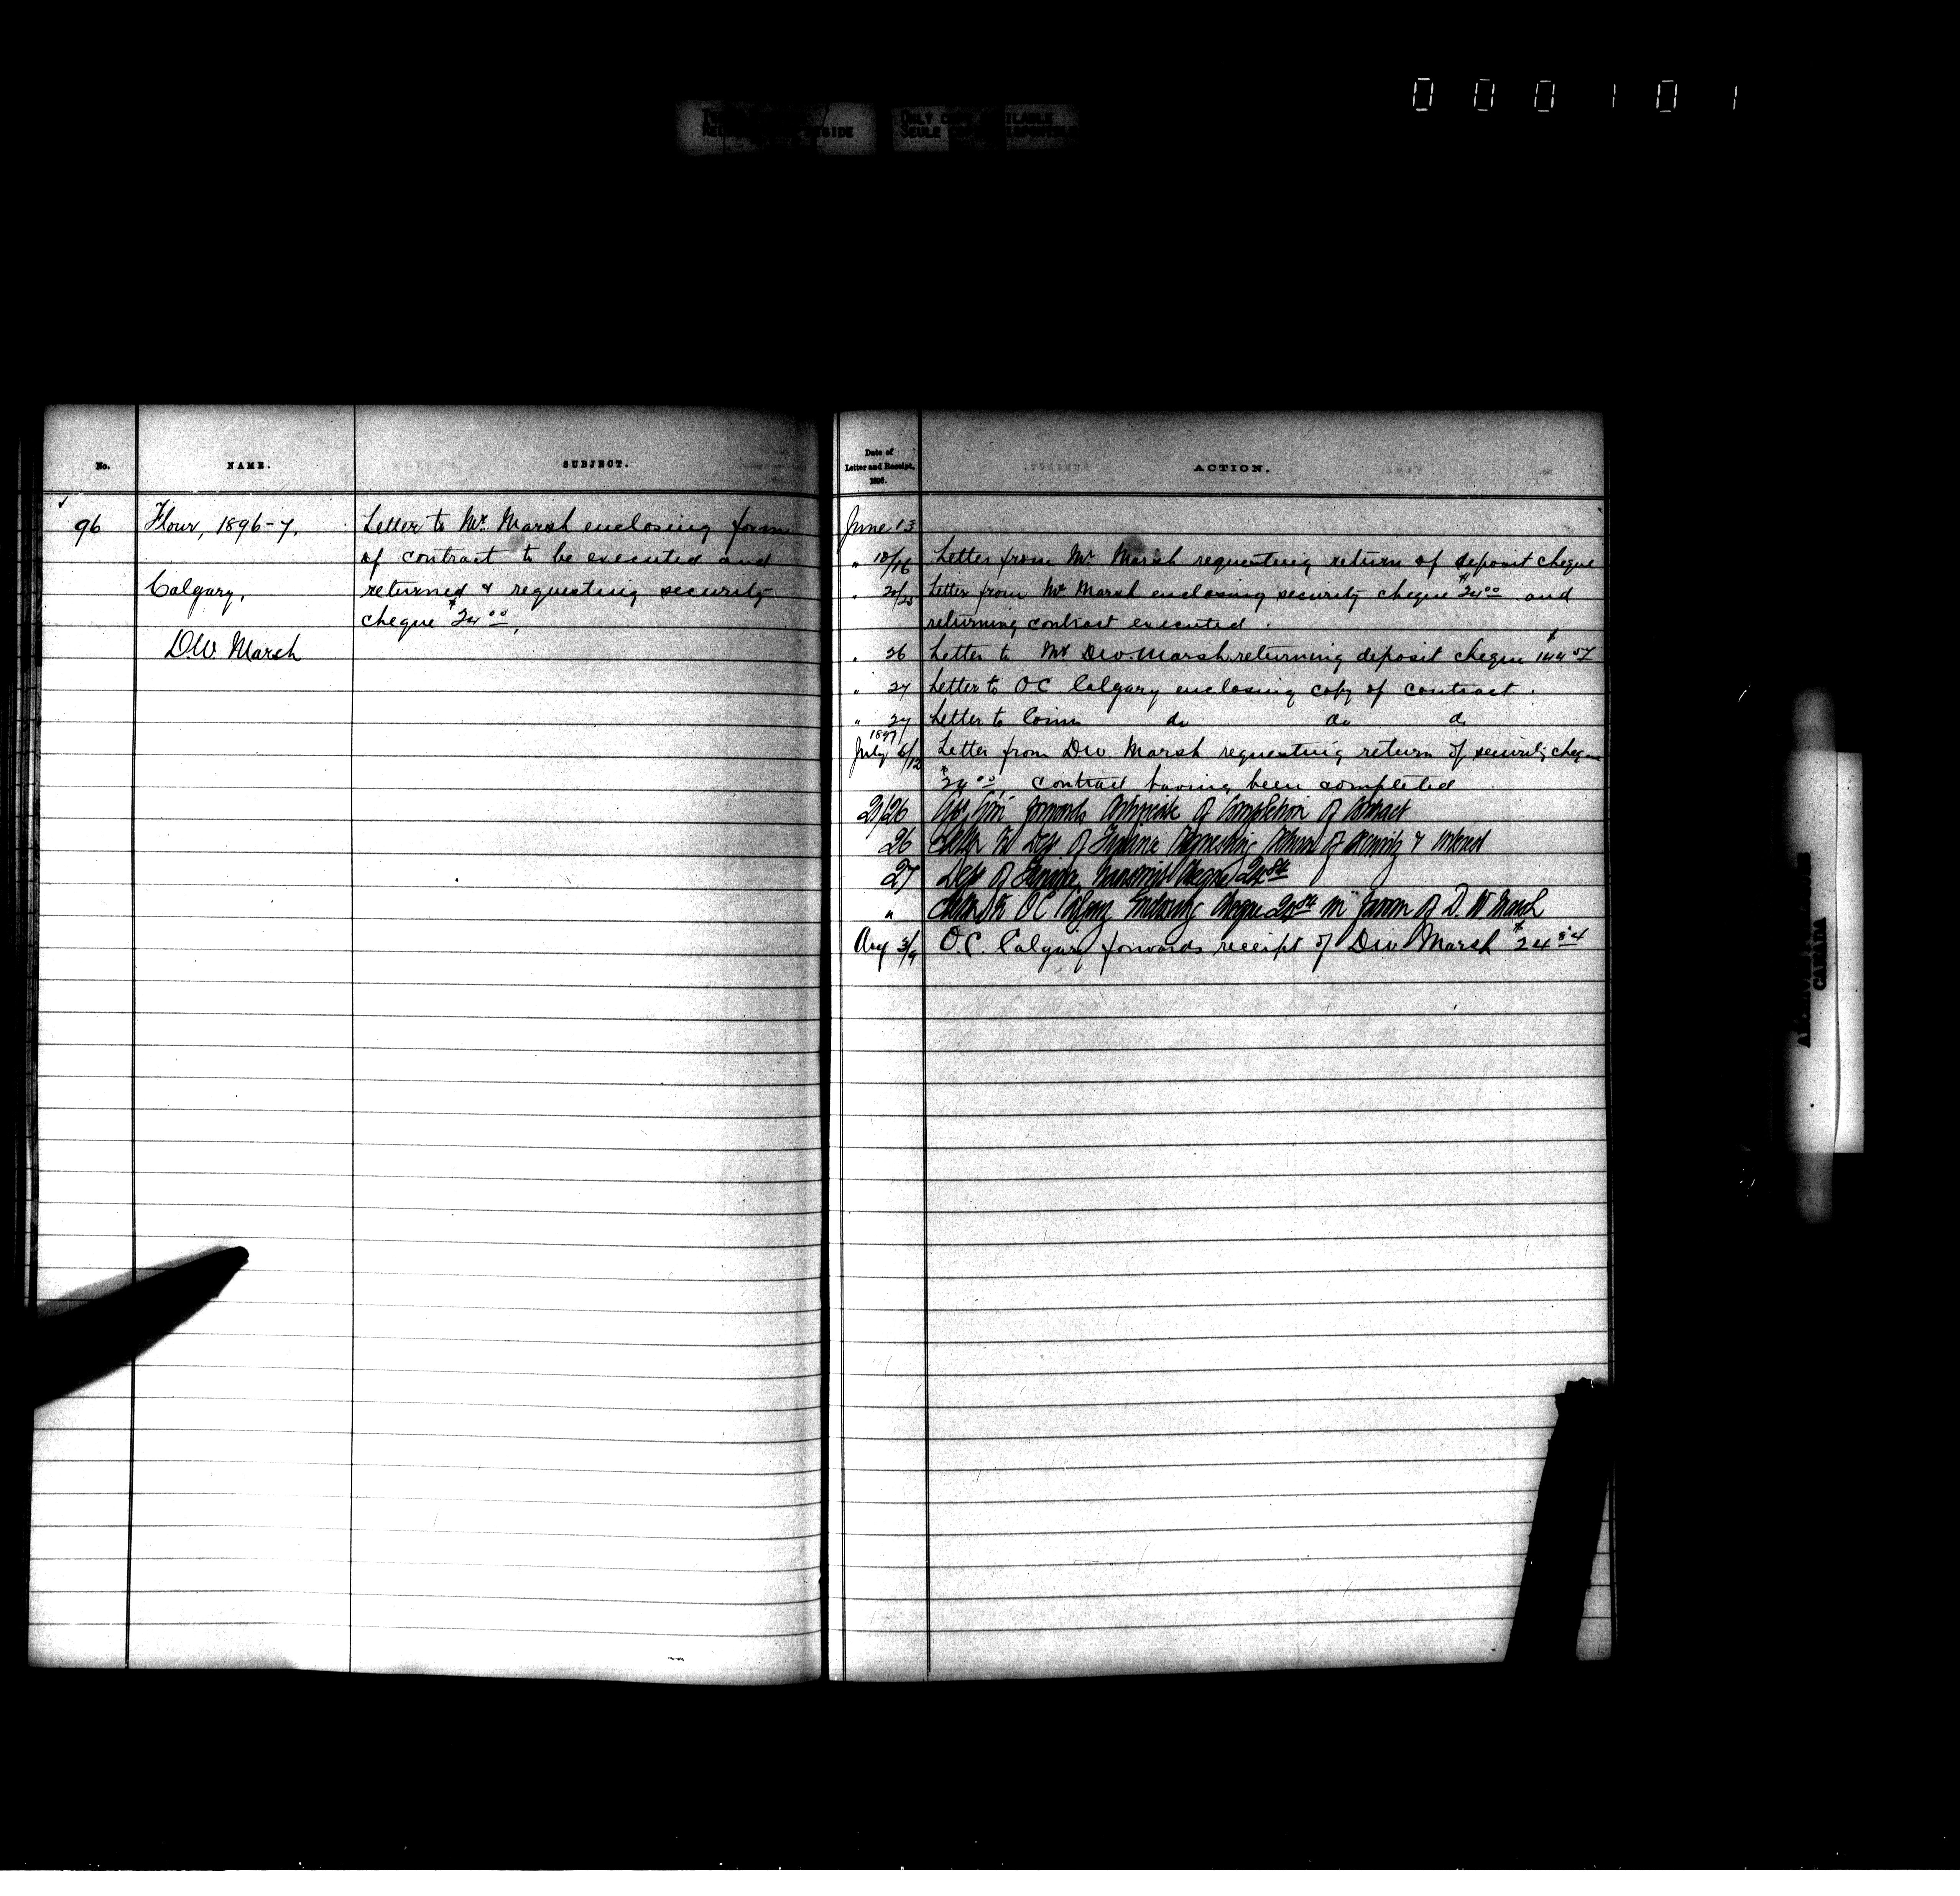 000101
ONLY COPY AVAILABLE
SEULE
No.
NAME.
SUBJECT.
96
Flour, 1896-7.
Calgary.
D.W. Marsh
Letter to Mr. Marsh enclosing form
of contract to be executed and
returned & requesting security
cheque $24.00,
Date of
Letter and Receipt,
1896.
ACTION.
June 13
" 12/16 Letter from Mr. Marsh requesting return of deposit cheque
" 20/25 Letter from Mr Marsh enclosing security cheque $24.00 and
returning contract executed.
" 26 Letter to Mr D.W. Marsh returning deposit cheque $144.57
" 27 Letter to OC Calgary enclosing copy of contract.
" 27 Letter to Comr do do do
1897
July 6/12 Letter from DW. Marsh requesting return of security cheque
$24.00, contract having been completed
21/26 forwards Certificate of Completion of Contract
26 Letter to Dept of Finance Requesting Return of Security & interest
27 Dept of Finance transmits Cheque 24.84
" Letter to OC Calgary Enclosing Cheque 24.84 in favor of D. W Marsh
Aug 3/9 O.C. Calgary forwards receipt of DW Marsh $24.84